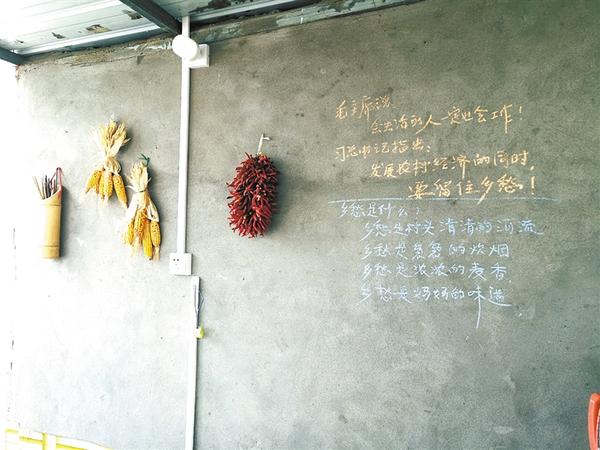 毛主席说
会生活的人一定也会工作!
习总书记指出:
发展农村经济的同时,
要留住乡愁!
乡愁是什么?
乡愁是村头清清的河流
乡愁是袅袅的炊烟
乡愁是浓浓的麦香
乡愁是妈妈的味道